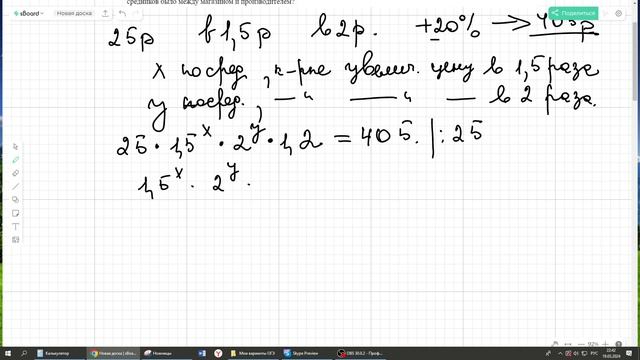 средников было между магазином и производителем?
sBoard
Новая доска
Поделиться
25р в 1,5р в 2р. +20% → 405р
x посред., к-рые увелич. цену в 1,5 раза
y посред., —〃— —〃— в 2 раза.
25 · 1,5^x · 2^y · 1,2 = 405. |: 25
1,5^x · 2^y ·
92%
Калькулятор
Новая доска | sBoa...
Ножницы
Мои варианты ОГЭ
Skype Preview
OBS 30.0.2 - Проф...
РУС
22:42
19.05.2024